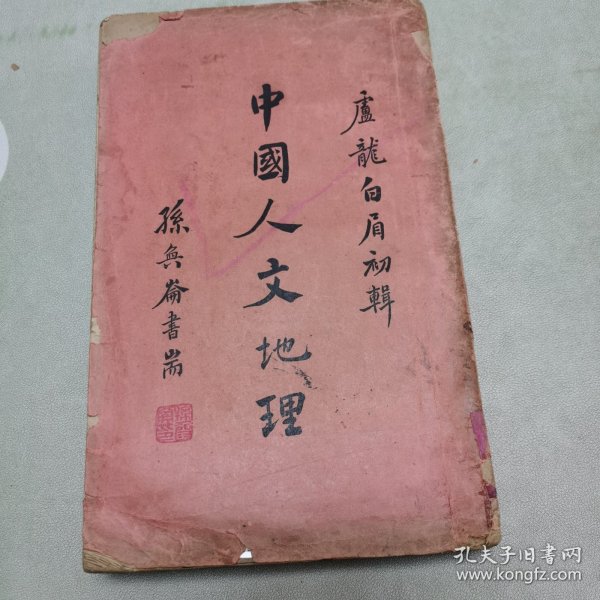 盧龍白眉初輯
中國人文地理
孫奐崙書耑
孔夫子旧书网
www.kongfz.com